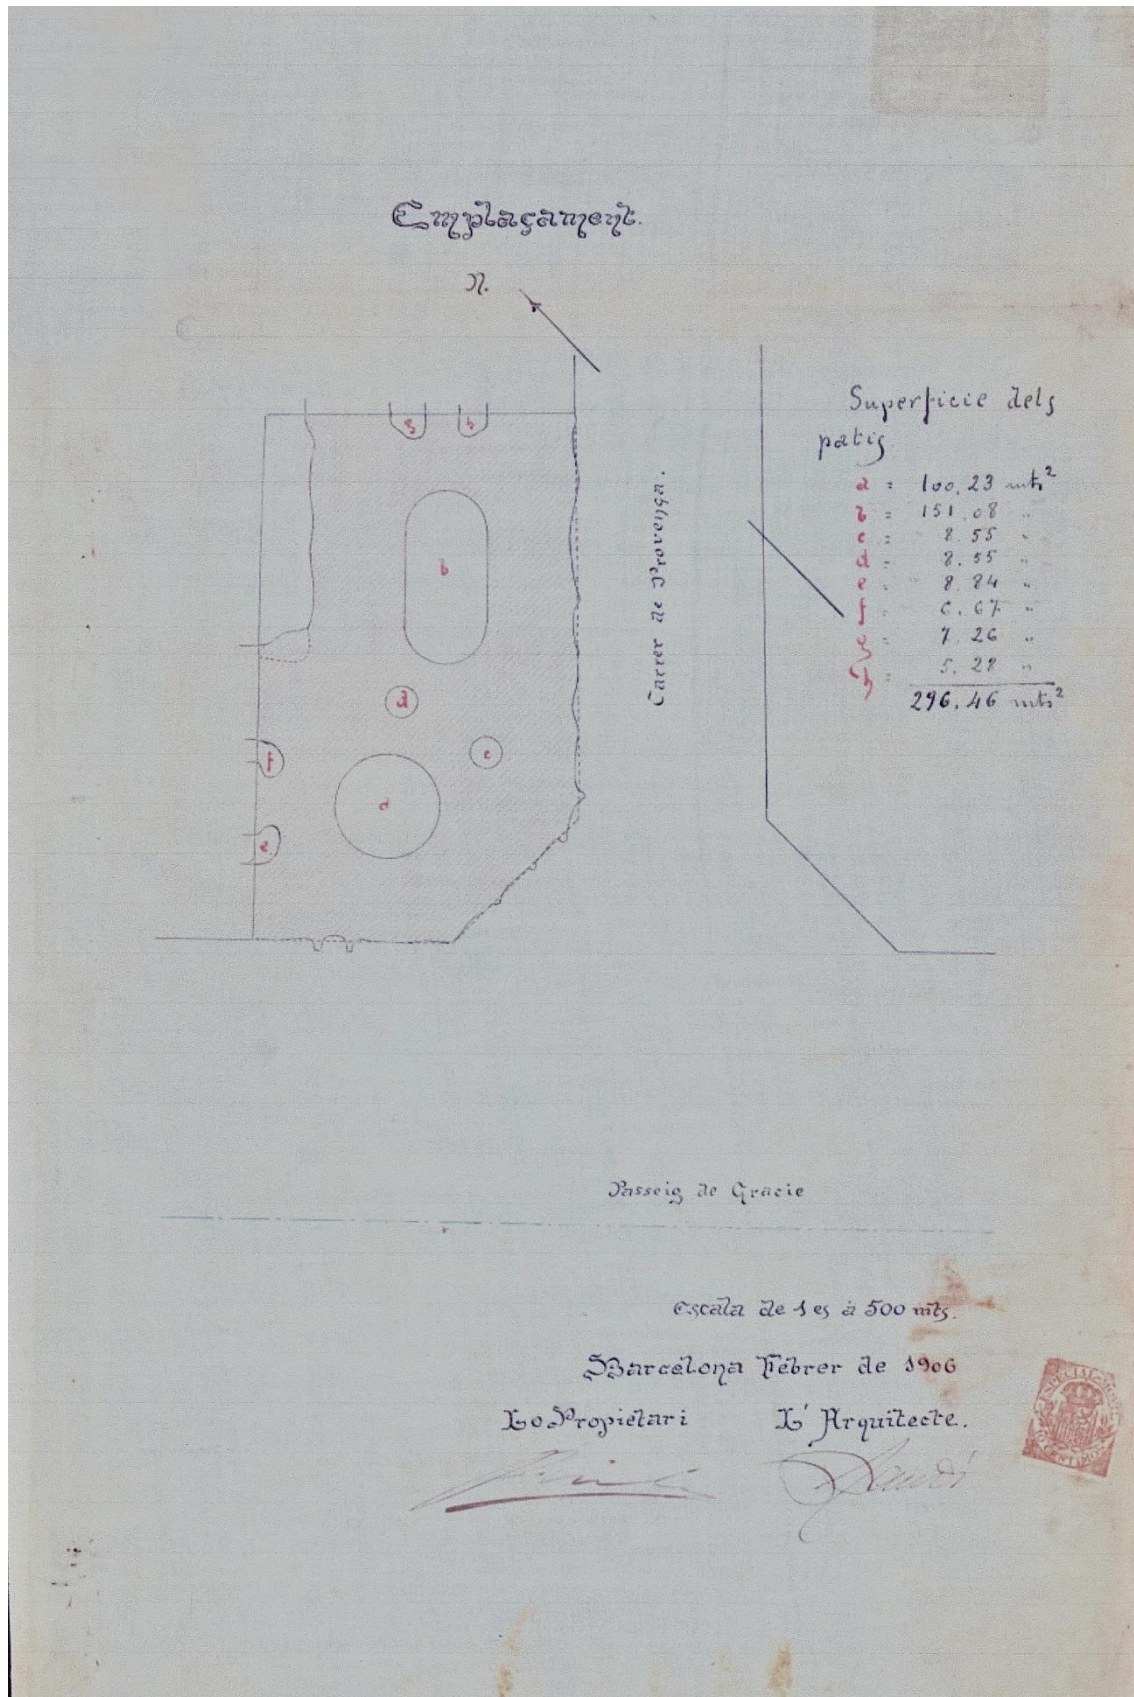 Emplaçament.
N.
g
h
b
d
c
f
a
e
Carrer de Provença.
Superficie dels
patis
a = 100,23 mts²
b = 151,08 "
c = 8.55 "
d = 8.55 "
e = 8.84 "
f = 6.67 "
g = 7.26 "
h = 5.28 "
296,46 mts²
Passeig de Gracie
Escala de 1 es à 500 mts.
Barcelona Febrer de 1906
Lo Propietari
L' Arquitecte.
Gaudí
ESPECIAL
10 CENTIMOS